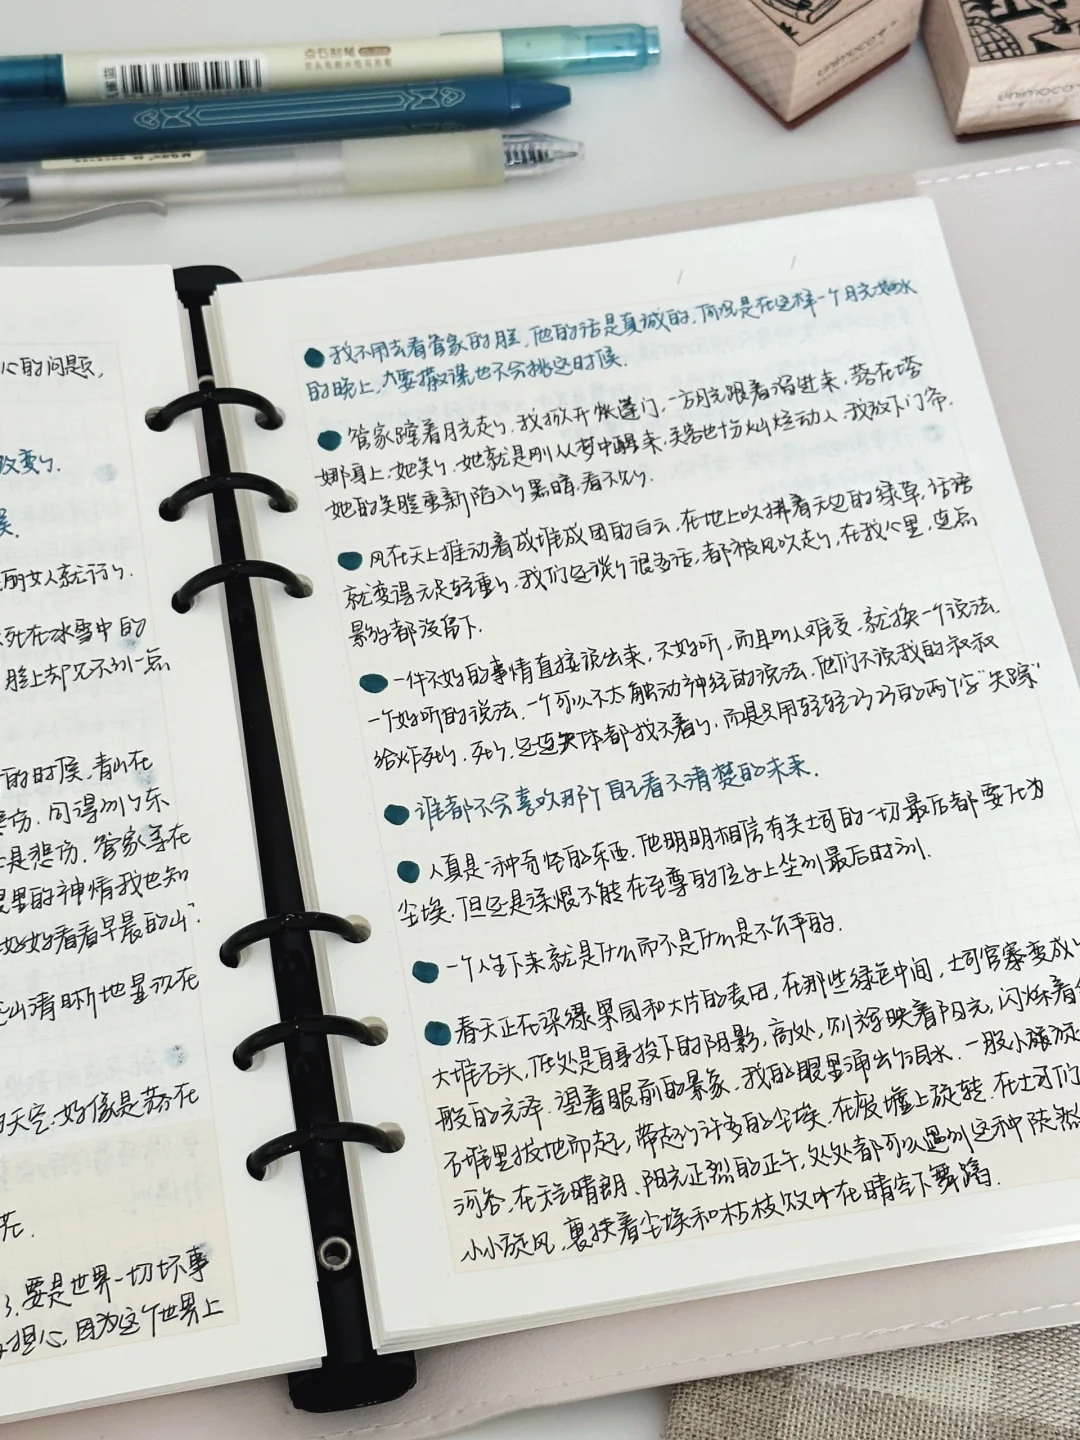 点石制尾
unimoco
unimoco
心的问题,
改变了.
丽女人就行了.
死在冰雪中的
脸上却见不到一点
的时候,青山在
悲伤.问得到了东
是悲伤.管家等在
里的神情我也知
好好看看早晨的山".
山清晰地显现在
天空.好像是荡在
花.
了.要是世界一切坏事
担心.因为这个世界上
我不用去看管家的脸,他的话是真诚的.何况是在这样一个月光如水
的晚上,人要撒谎也不会挑这时候.
管家踏着月光走了,我掀开帐篷门,一方月光跟着溜进来,落在塔
娜身上.她笑了.她就是刚从梦中醒来,笑容也十分灿烂动人.我放下门帘.
她的笑脸重新陷入了黑暗,看不见了.
风在天上推动着成堆成团的白云,在地上吹拂着无边的绿草,话语
就变得无足轻重了.我们还谈了很多话,都被风吹走了,在我心里,连点
影子都没留下.
一件不好的事情直接说出来,不好听,而且叫人难受,就换一个说法.
一个好听的说法.一个可以不太触动神经的说法.他们不说我的叔叔
给炸死了,死了,还连尸体都找不着了,而是只用轻轻巧巧的两个字"失踪"
谁都不会喜欢那个自己看不清楚的未来.
人真是一种奇怪的东西.他明明相信有关土司的一切最后都要化为
尘埃.但还是深恨不能在至尊的位子上坐到最后时刻.
一个人生下来就是什么而不是什么是不公平的.
春天正在染绿果园和大片的麦田,在那些绿色中间,土司官寨变成了
大堆石头,低处是自身投下的阴影,高处,则辉映着阳光,闪烁着
般的光泽.望着眼前的景象.我的眼里涌出了泪水.一股小旋风
石堆里拔地而起,带起了许多的尘埃.在废墟上旋转.在土司们
河谷.在天气晴朗、阳光正烈的正午,处处都可以遇到这种陡然
小小旋风,裹挟着尘埃和枯枝败叶在晴空下舞蹈.